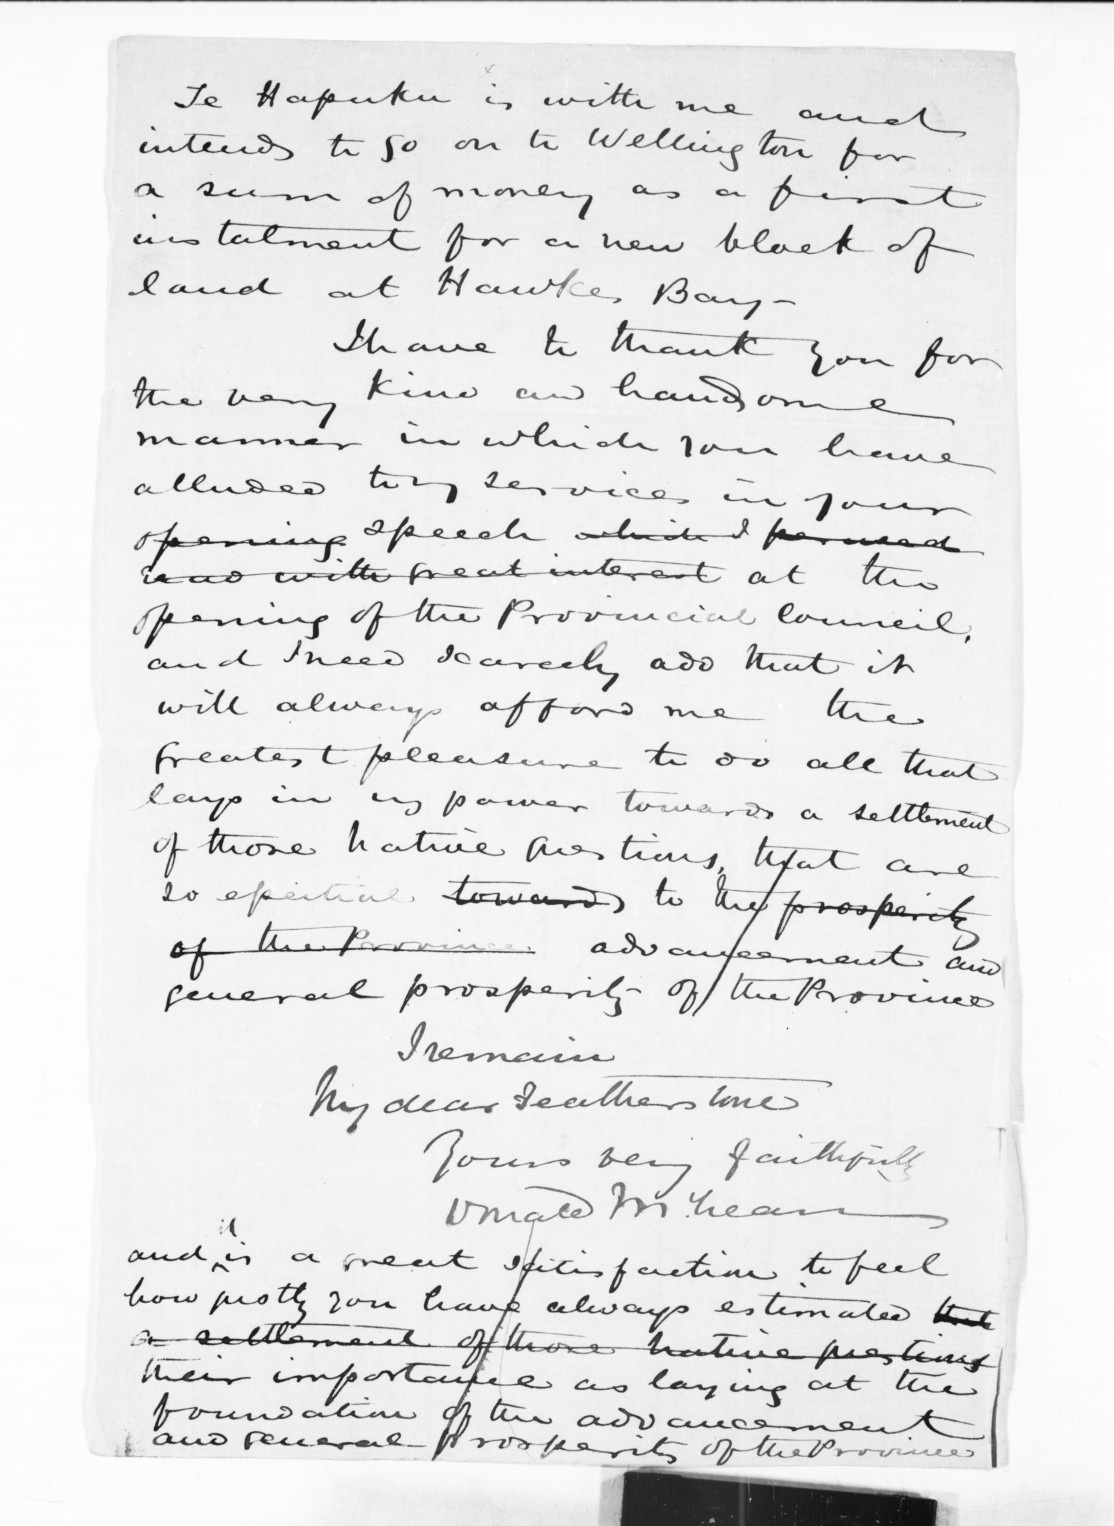 Te Hapuku is with me and
intends to go on to Wellington for
a sum of money as a first
instalment for a new block of
land at Hawkes Bay -
I have to thank you for
the very kind and handsome
manner in which you have
alluded to my services in your
opening speech which I perused
and with great interest at the
opening of the Provincial Council,
and I need scarcely add that it
will always afford me the
greatest pleasure to do all that
lays in my power towards a settlement
of those native questions, that are
so essential towards to the prosperity
of the Province advancement and
general prosperity of the Province
I remain
My dear Featherstone
Yours very faithfully
Donald McLean
and it is a great satisfaction to feel
how justly you have always estimated that
a settlement of those native questions
their importance as laying at the
foundation of the advancement
and general prosperity of the Province